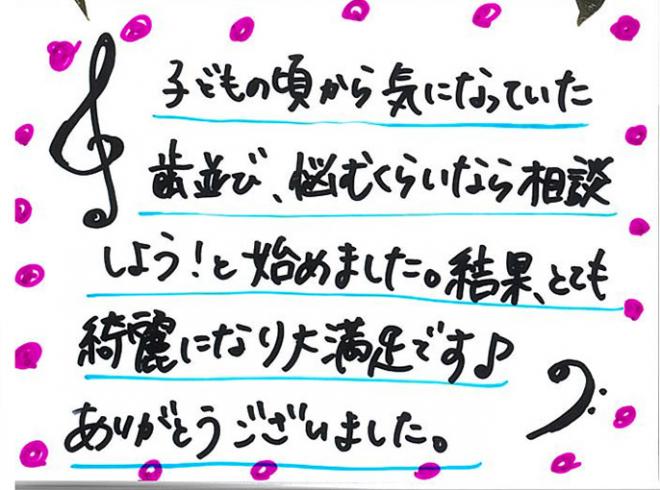 子どもの頃から気になっていた
歯並び、悩むくらいなら相談
しよう!と始めました。結果、とても
綺麗になり大満足です♪
ありがとうございました。